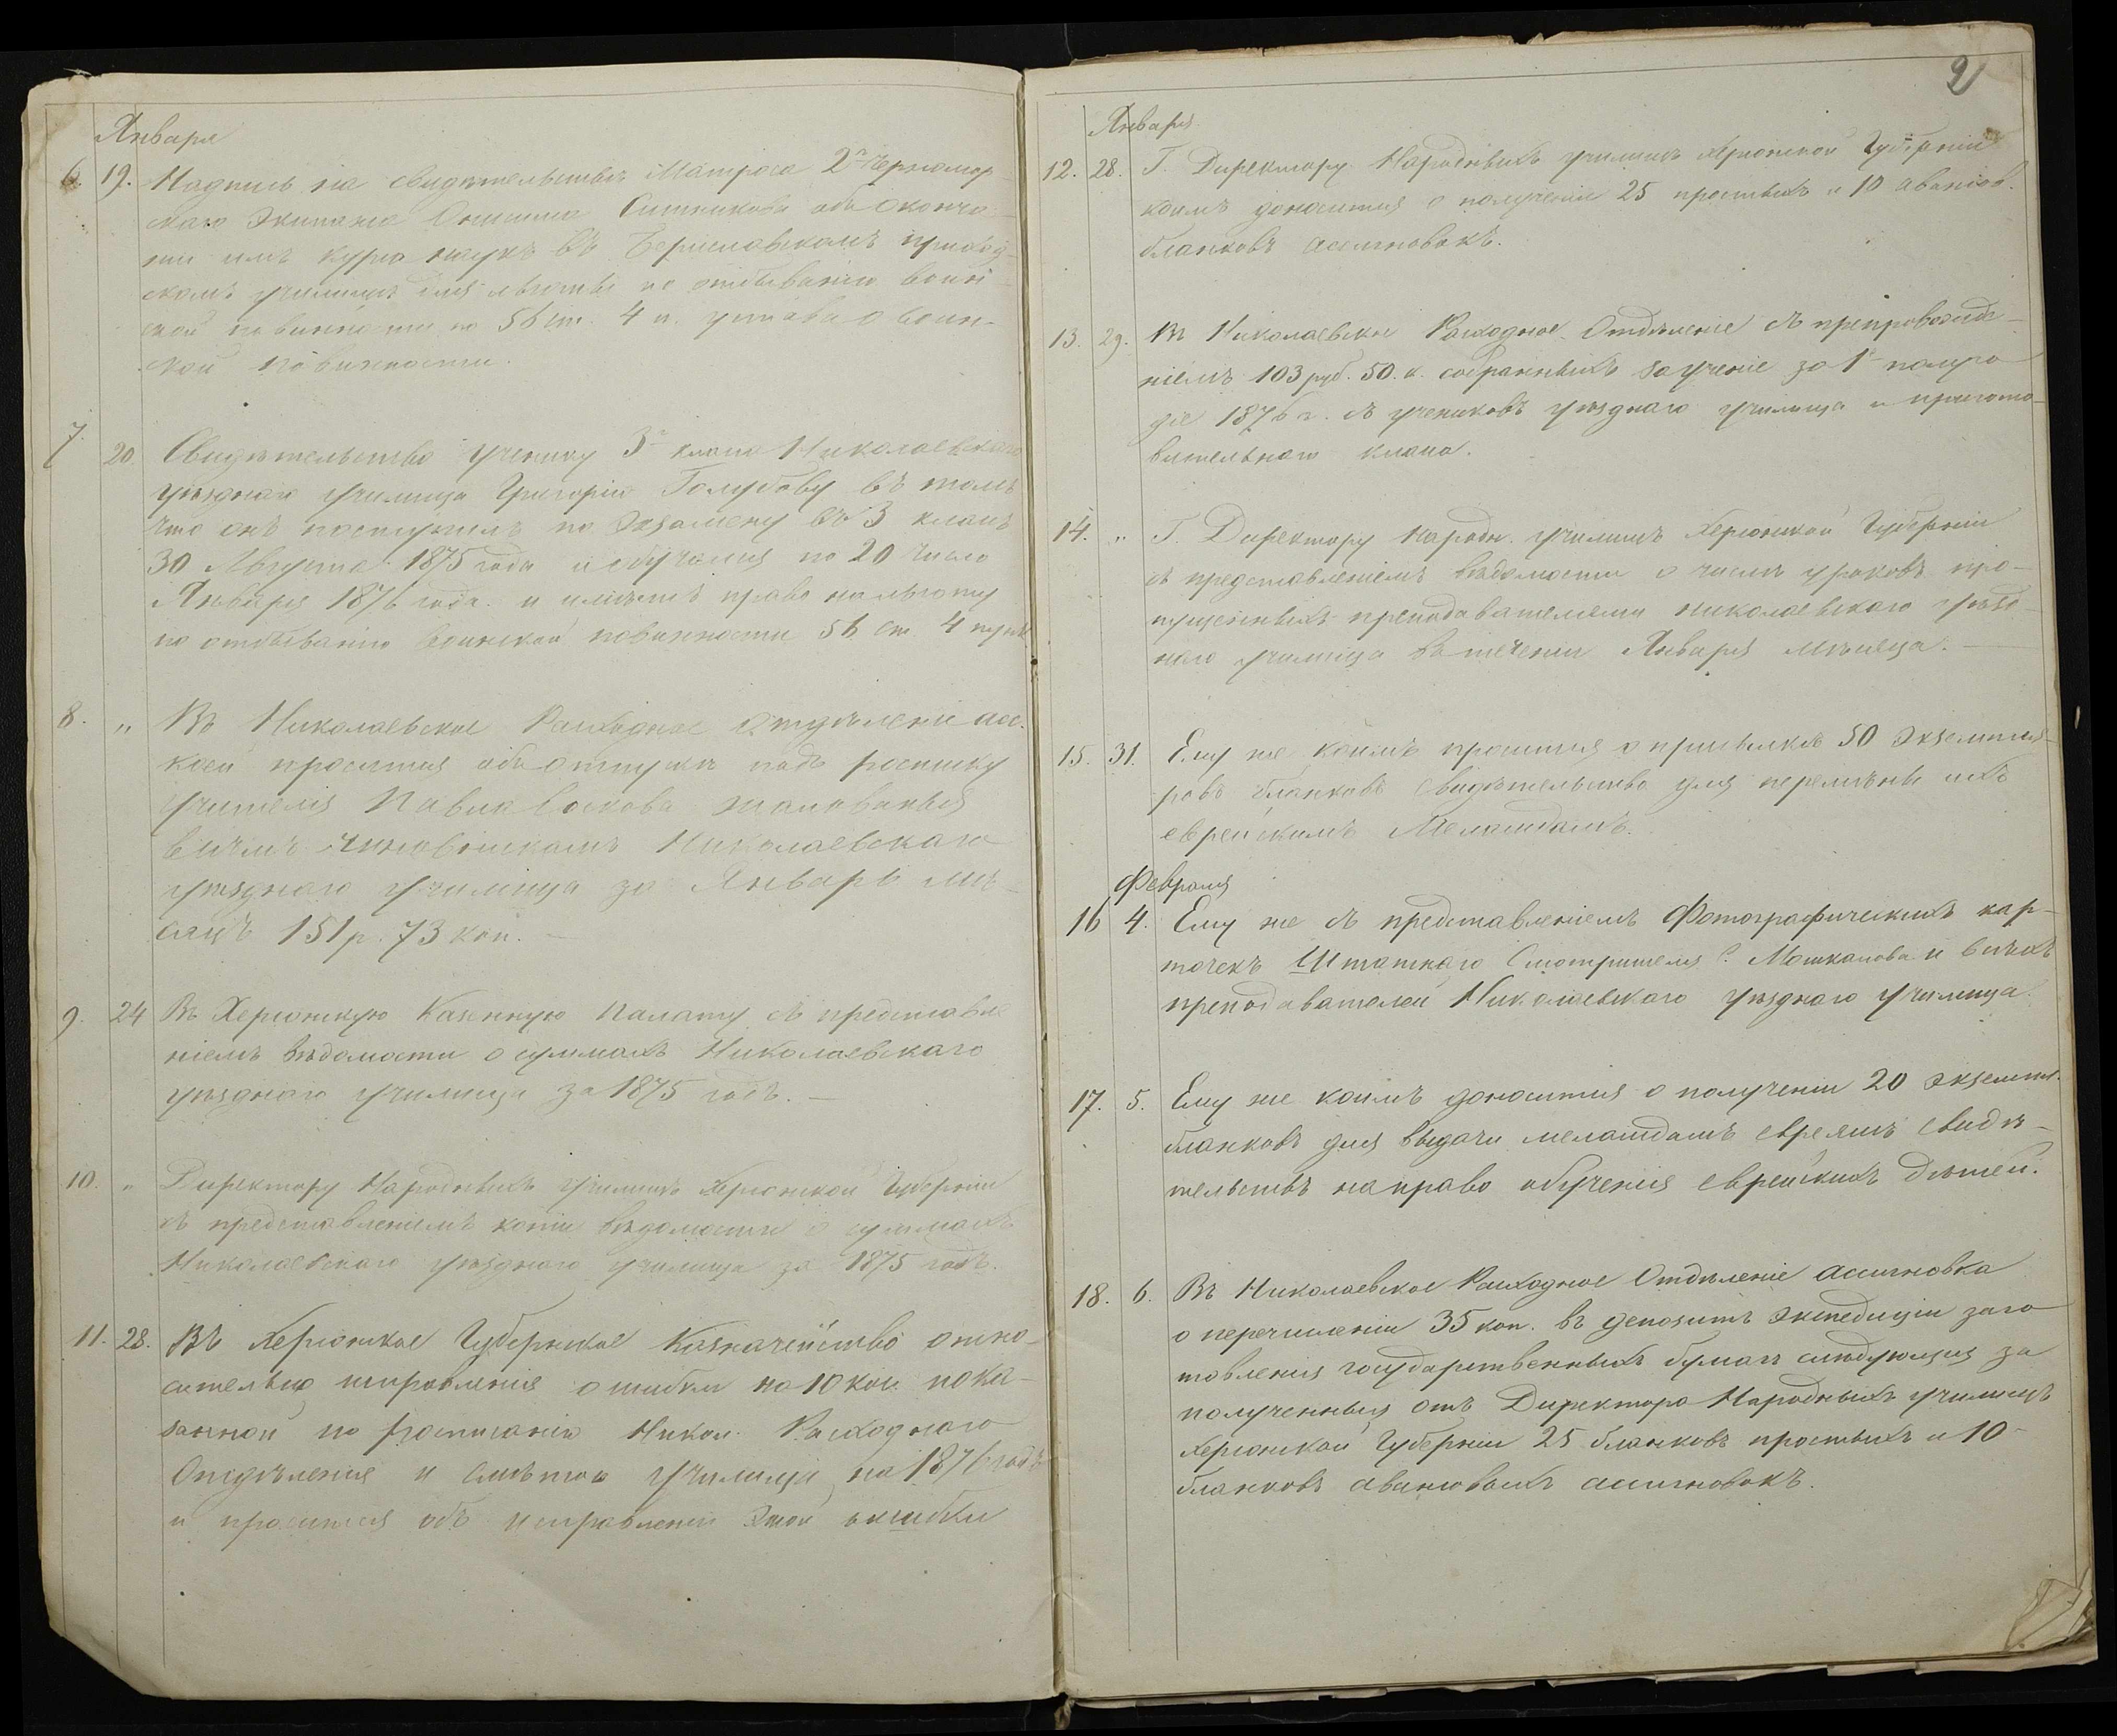 Января
6. 19. Надпись на свидетельствѣ Матроса 2го Черномор-
скаго Экипажа Онисима Ситникова объ оконча-
ніи имъ курса наукъ въ Бериславскомъ приход-
скомъ училищѣ для льготы по отбыванію воин-
ской повинности по 56 ст. 4 п. устава о воин-
ской повинности.
7. 20 Свидѣтельство ученику 3го класса Николаевскаго
уѣзднаго училища Григорію Голубову въ томъ
что онъ поступилъ по экзамену въ 3 классъ
30 Августа 1875 года и обучался по 20 число
Января 1876 года и имѣетъ право на льготу
по отбыванію воинской повинности 56 ст. 4 пункт
8. „ Въ Николаевское Расходное Отдѣленіе асс.
коей просится объ отпускѣ подъ росписку
учителя Павла жалованья
всѣмъ чиновникамъ Николаевскаго
уѣзднаго училища за Январь мѣ-
сяцъ 151 р. 73 коп. —
9. 24 Въ Херсонскую Казенную Палату съ представле
ніемъ вѣдомости о суммахъ Николаевскаго
уѣзднаго училища за 1875 годъ. —
10. „ Директору Народныхъ училищъ Херсонской Губерніи
съ представленіемъ копіи вѣдомости о суммахъ
Николаевскаго уѣзднаго училища за 1875 годъ.
11. 28. Въ Херсонское Губернское Казначейство отно-
сительно исправленія ошибки на 10 коп. пока-
занной по росписанію Никол. Расходнаго
Отдѣленія и смѣтою училища на 1876 годъ
и просится объ исправленіи этой ошибки
2
Января
12. 28. Г. Директору Народныхъ училищъ Херсонской Губерніи
коимъ доносится о полученіи 25 простыхъ и 10 авансов.
бланковъ ассигновокъ.
13. 29. Въ Николаевское Расходное Отдѣленіе съ препровожде-
ніемъ 103 руб. 50. к. собранныхъ за ученіе за 1е полуго
діе 1876 г. съ учениковъ уѣзднаго училища и пригото-
вительнаго класса.
14. „ Г. Директору народн. училищъ Херсонской Губерніи
съ представленіемъ вѣдомости о числѣ уроковъ про-
пущенныхъ преподавателями николаевскаго уѣзд-
наго училища въ теченіи Января мѣсяца. —
15. 31. Ему же коимъ просится о присылкѣ 50 экземпля-
ровъ бланковъ свидѣтельство для перемѣны ихъ
еврейскимъ Меламдамъ.
Февраля
16 4. Ему же съ представленіемъ Фотографическихъ кар-
точекъ Штатнаго Смотрителя С. Мошкалова и всѣхъ
преподавателей Николаевскаго уѣзднаго училища.
17. 5. Ему же коимъ доносится о полученіи 20 экземпл.
бланковъ для выдачи меламдамъ евреямъ свидѣ-
тельствъ на право обученія еврейскихъ дѣтей.
18. 6. Въ Николаевское Расходное Отдѣленіе ассигновка
о перечисленіи 35 коп. въ депозитъ экспедиціи заго
товленія государственныхъ бумагъ слѣдующія за
полученныя отъ Директора Народныхъ училищъ
Херсонской Губерніи 25 бланковъ простыхъ и 10 -
бланковъ авансовыхъ ассигновокъ.